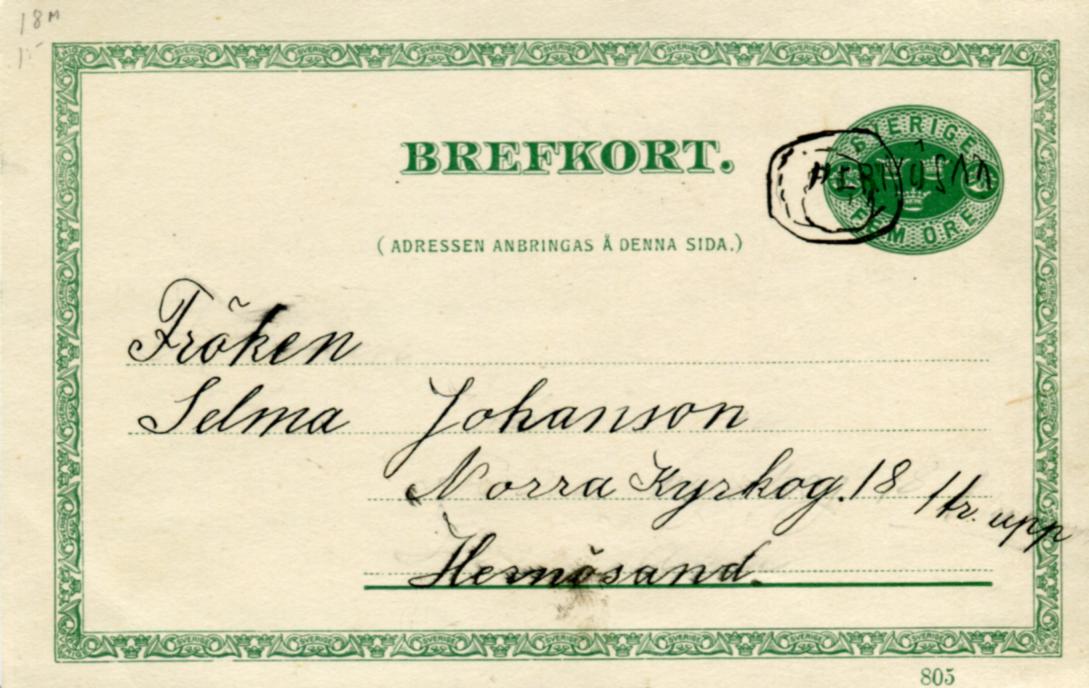 18 M
BREFKORT.
SVERIGE
FEM ÖRE
(ADRESSEN ANBRINGAS Å DENNA SIDA.)
Fröken
Selma Johanson
Norra Kyrkog. 18 1 tr. upp
Hernösand.
805